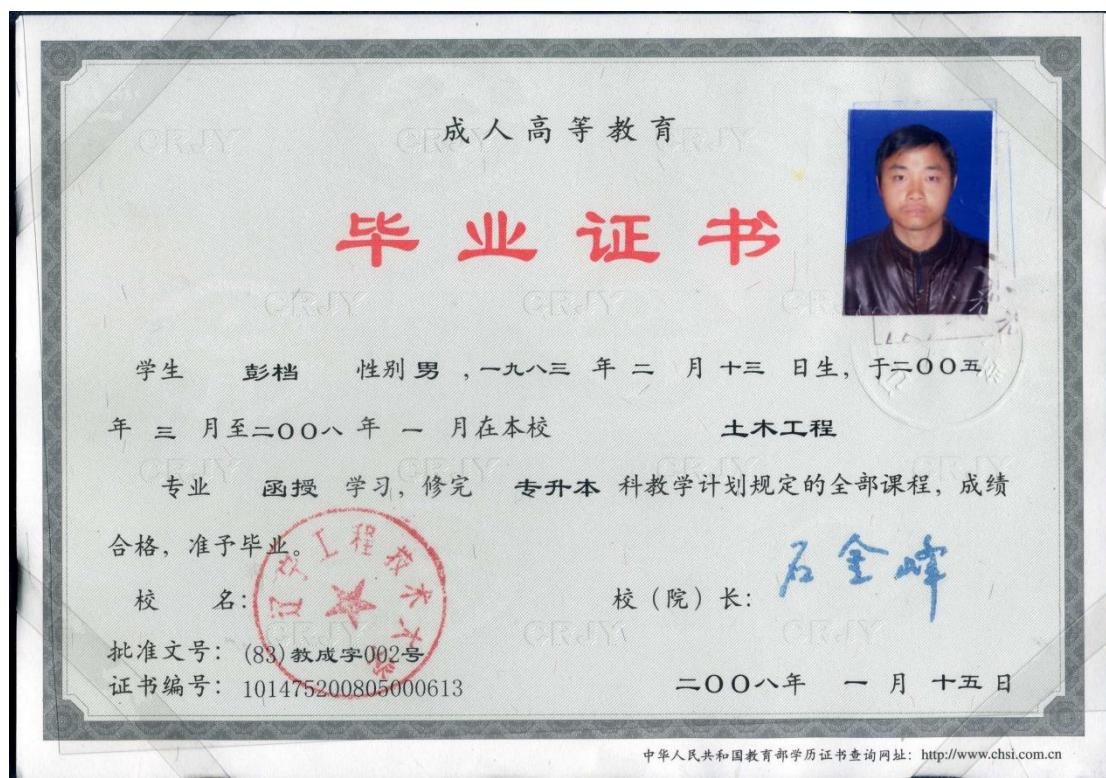 成人高等教育
毕业证书
学生 彭档 性别 男 ,一九八三 年 二 月 十三 日生, 于二OO五
年 三 月至二OO八 年 一 月在本校 土木工程
专业 函授 学习, 修完 专升本 科教学计划规定的全部课程, 成绩
合格, 准予毕业。
校 名:
辽宁工程技术大学
校（院）长: 石金峰
批准文号: (83)教成字002号
证书编号: 101475200805000613
二OO八年 一 月 十五 日
中华人民共和国教育部学历证书查询网址: http://www.chsi.com.cn
CRJY